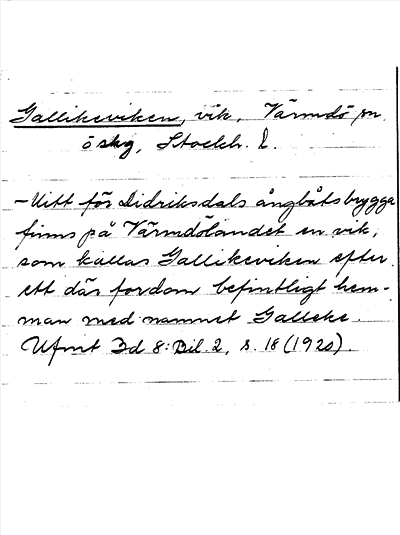 Gallikeviken, vik, Värmdö sn
ö skg, Stockh. l.
– Mitt för Didriksdals ångbåtsbrygga
finns på Värmdölandet en vik,
som kallas Gallikeviken efter
ett där fordom befintligt hem-
man med namnet Galleke.
Ufmt Bd 8: Bil. 2, s. 18 (1920).